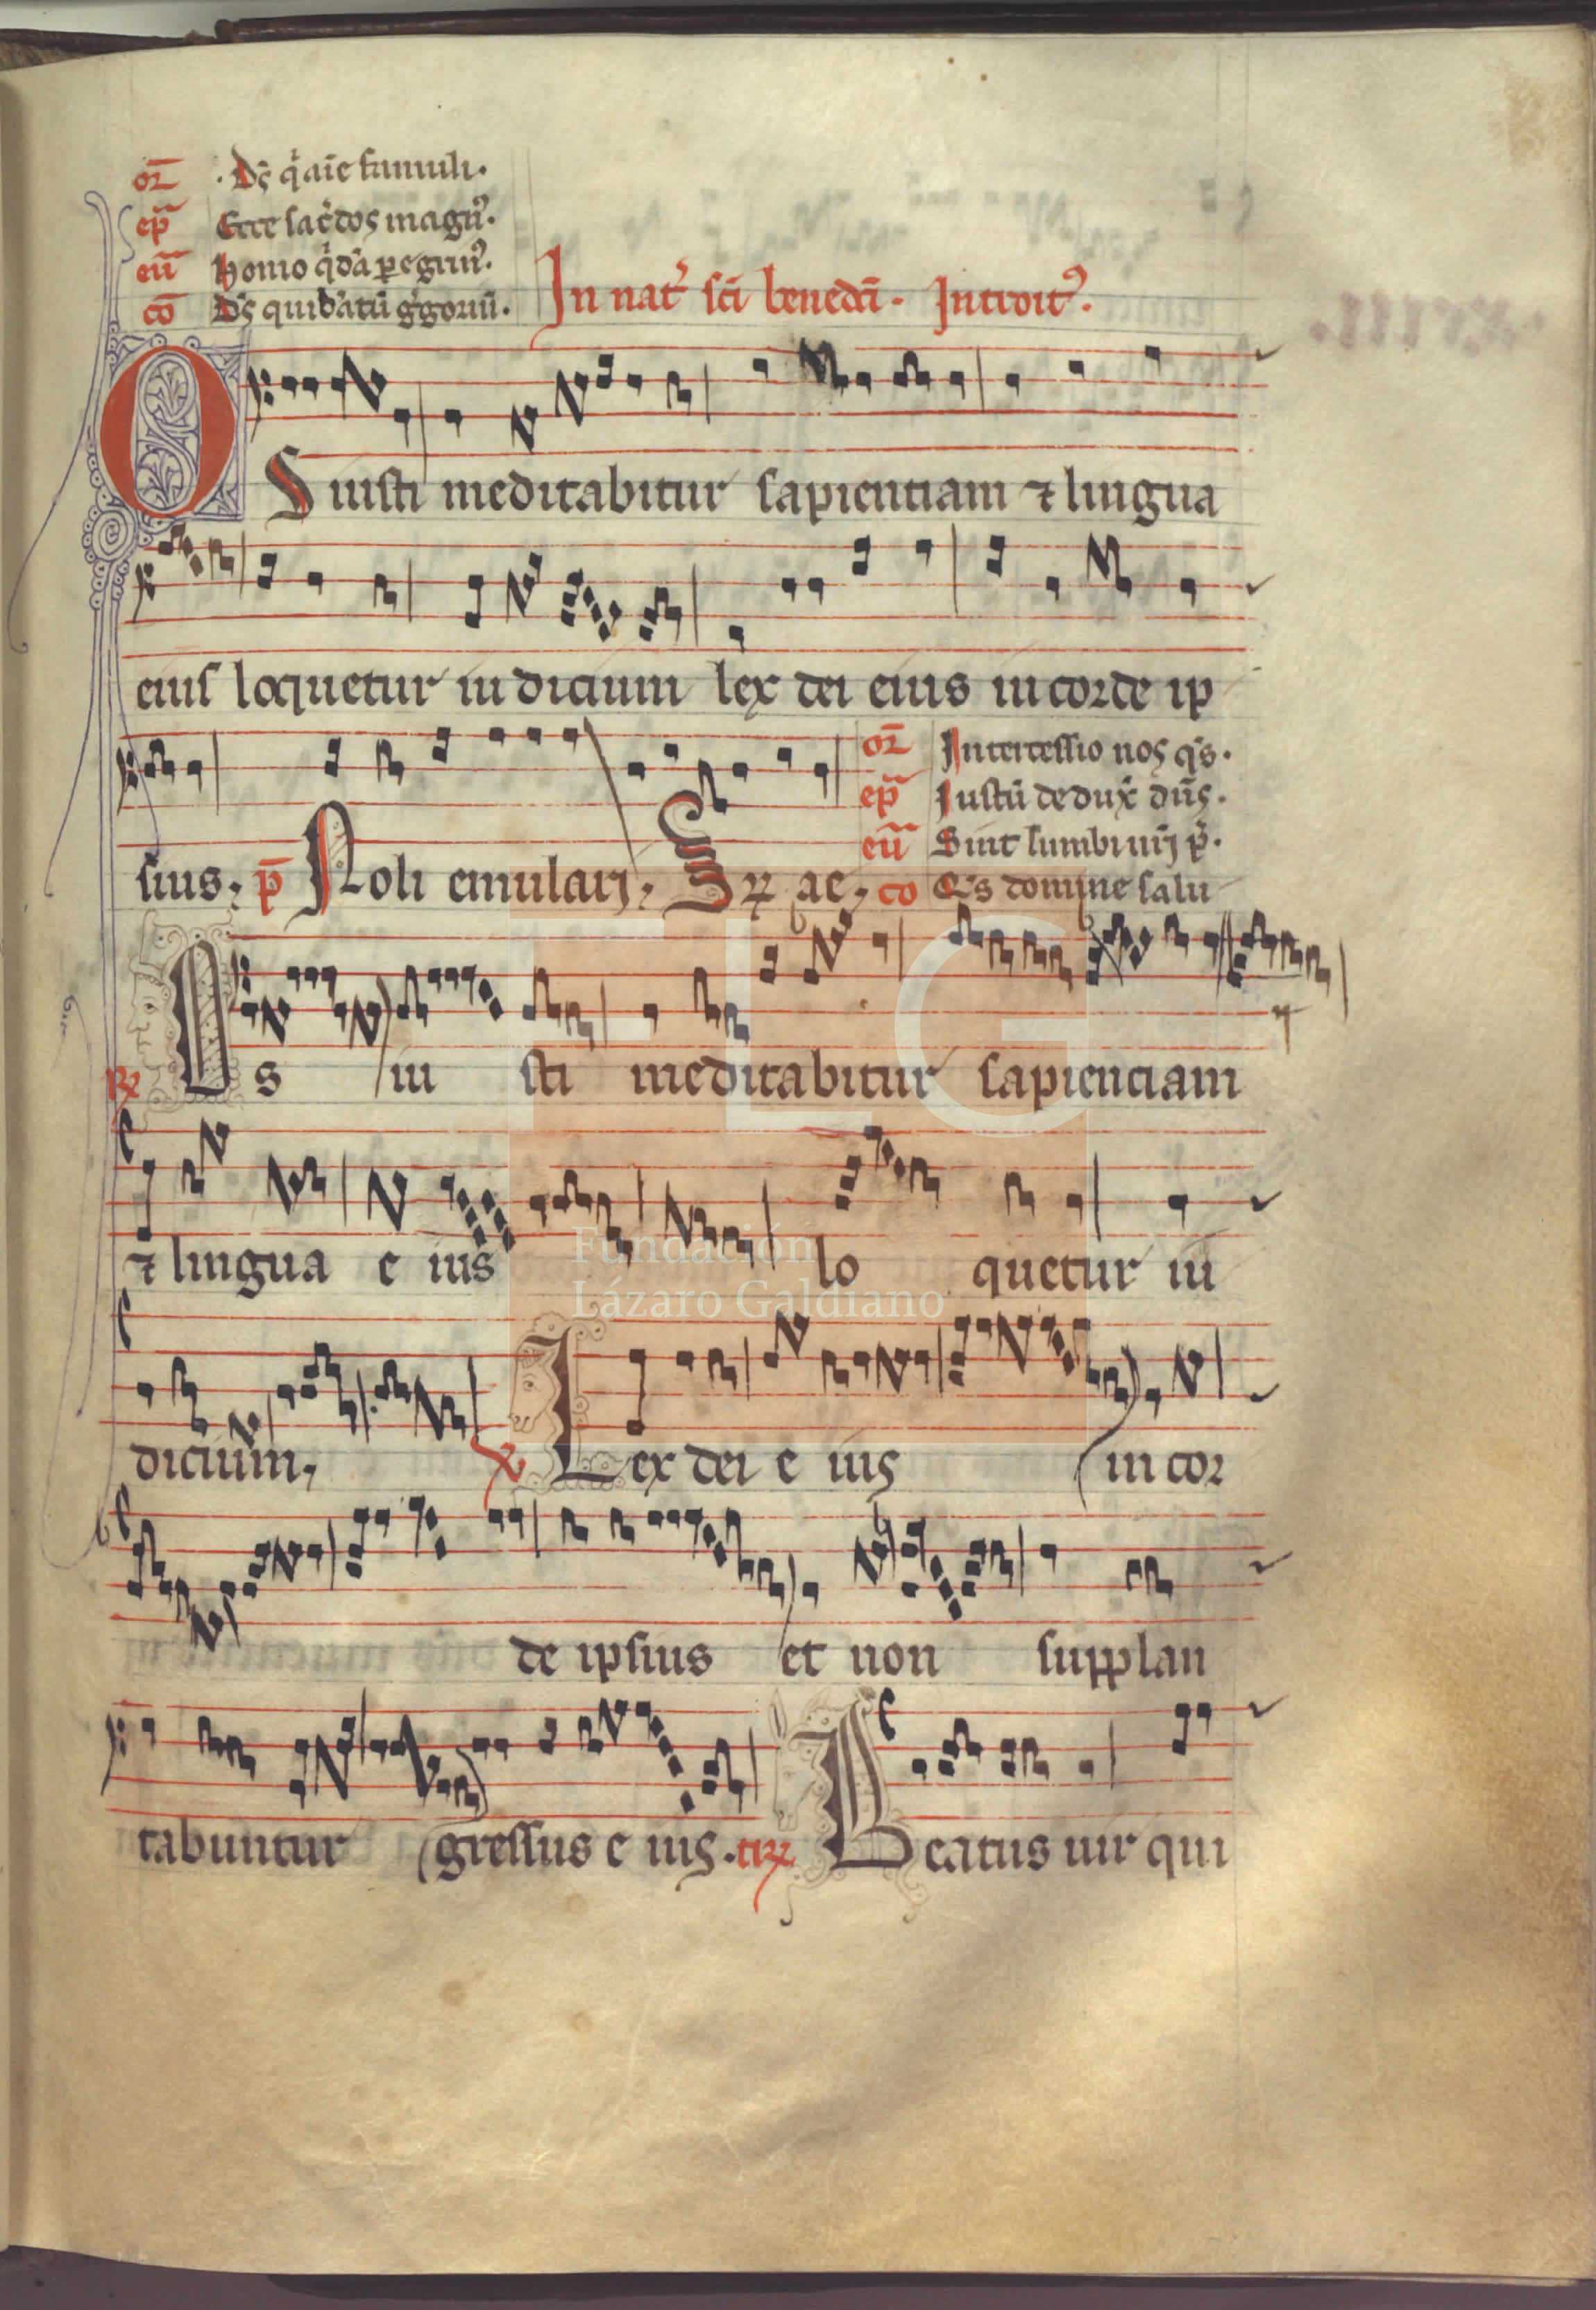 or̄ . Ds̄ q̇ aīe famuli.
ep̄ Ecce sac̄dos magn᷒.
eū Homo q̇dā pegrin᷒.
cō Ds̄ qui b̄atū g̊goriū.
In nat' sc̄i bened̄i. Introit᷒.
OS iusti meditabitur sapientiam ⁊ lingua
eius loquetur iudicium lex dei eius in corde ip
sius. p̄ Noli emulari. Sꝝ ae.
or̄ Intercessio nos q̄s.
ep̄ Iustū dedux̄ dn̄s.
eū Sint lumbi urī p̄.
co Q̄s domine salu
℞ OS iu sti meditabitur sapienciam
⁊ lingua e ius lo quetur iu
dicium. ℣ Lex dei e ius in cor
de ipsius et non supplan
tabuntur gressus e ius. Beatus uir qui
.xviii.
FLG
Fundación
Lázaro Galdiano